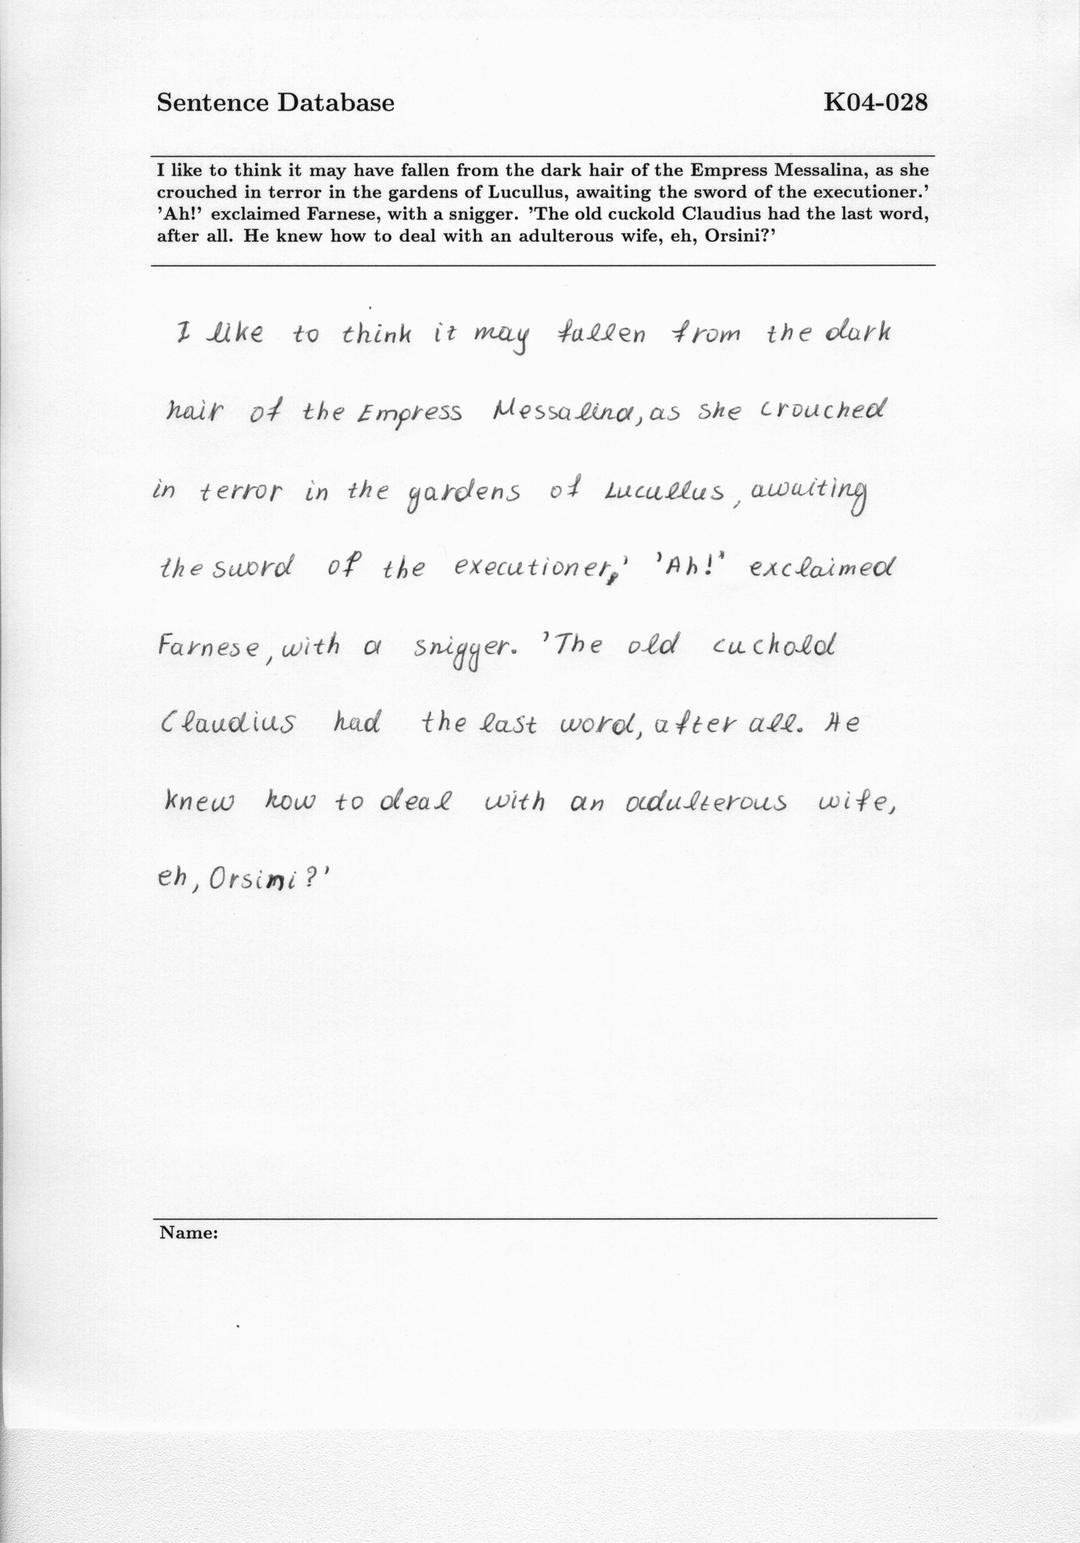 Sentence Database K04-028
I like to think it may have fallen from the dark hair of the Empress Messalina, as she
crouched in terror in the gardens of Lucullus, awaiting the sword of the executioner.’
’Ah!’ exclaimed Farnese, with a snigger. ’The old cuckold Claudius had the last word,
after all. He knew how to deal with an adulterous wife, eh, Orsini?’
I like to think it may fallen from the dark
hair of the Empress Messalina, as she crouched
in terror in the gardens of Lucullus, awaiting
the sword of the executioner,’ ’Ah!’ exclaimed
Farnese, with a snigger. ’The old cuckold
Claudius had the last word, after all. He
knew how to deal with an adulterous wife,
eh, Orsini?’
Name: